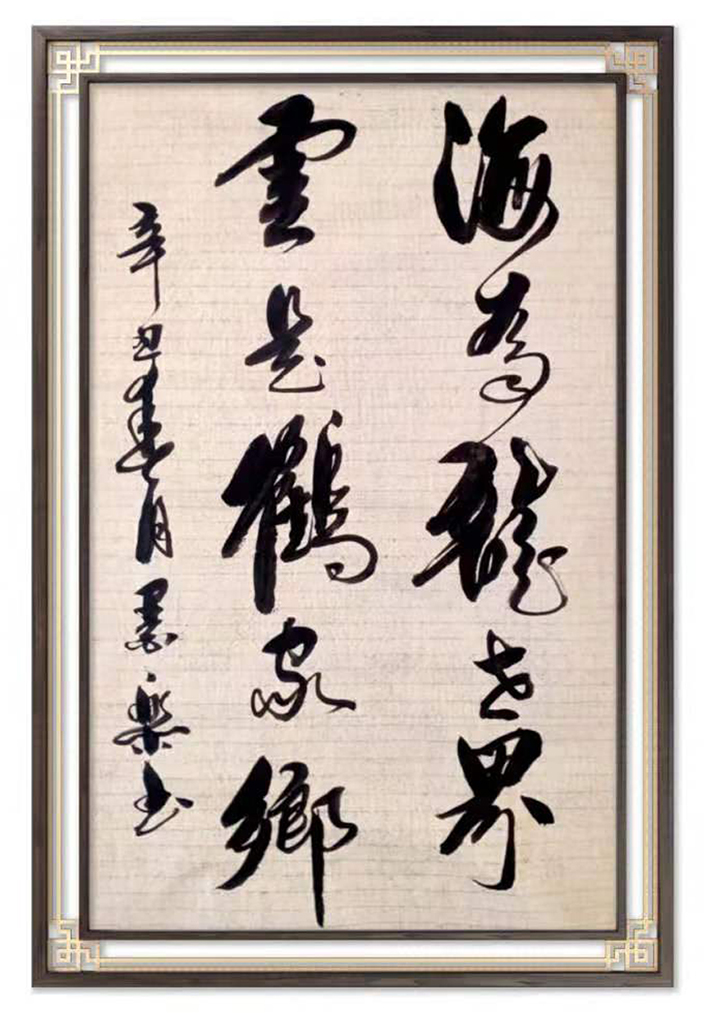 海為龍世界
雲是鶴家鄉
辛丑春月墨樂書